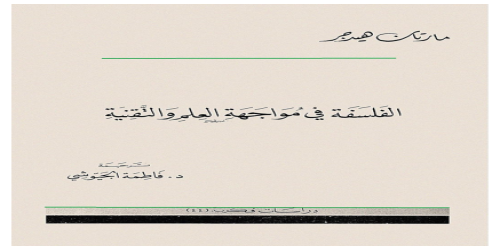 مارتن هيدجر
الفَلسَفَة في مُوَاجَهَةِ العِلمِ وَالتَّقنِيَةِ
ترجمَة
د. فَاطِمَة الجَيوشي
دراسات فكرية (٤٤)